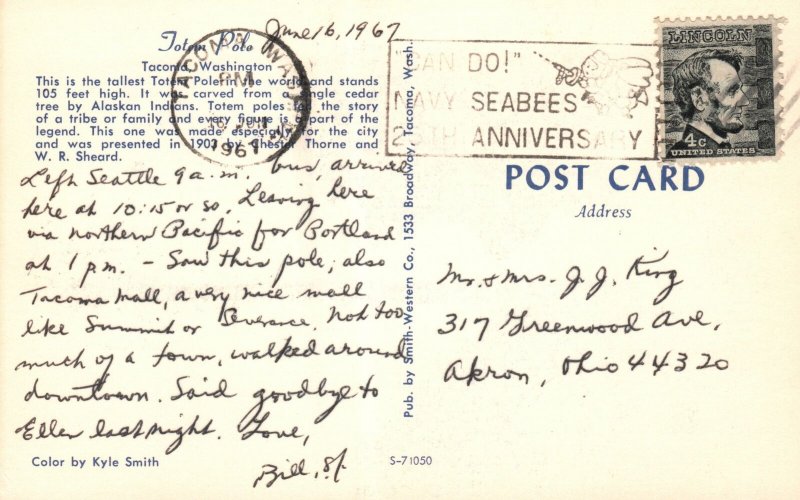 June 16, 1967
Totem Pole
Tacoma, Washington
This is the tallest Totem Pole in the world and stands
105 feet high. It was carved from a single cedar
tree by Alaskan Indians. Totem poles the story
of a tribe or family and every figure is a part of the
legend. This one was made especially for the city
and was presented in 1903 by Chester Thorne and
W. R. Sheard.
Left Seattle 9 a.m. bus, arrived
here at 10:15 or so. Leaving here
via northern Pacific for Portland
at 1 pm. - Saw this pole, also
Tacoma Mall, a very nice mall
like Summit or Severance. Not too
much of a town, walked around
downtown. Said goodbye to
Ellen last night. Love,
Bill, Sr.
Color by Kyle Smith
S-71050
Pub. by Smith-Western Co., 1533 Broadway, Tacoma, Wash.
TACOMA WASH
PM
16 JUN
1967
"CAN DO!"
NAVY SEABEES
25TH ANNIVERSARY
LINCOLN
4c
UNITED STATES
POST CARD
Address
Mr. & Mrs. J. J. King
317 Greenwood Ave,
Akron, Ohio 44320